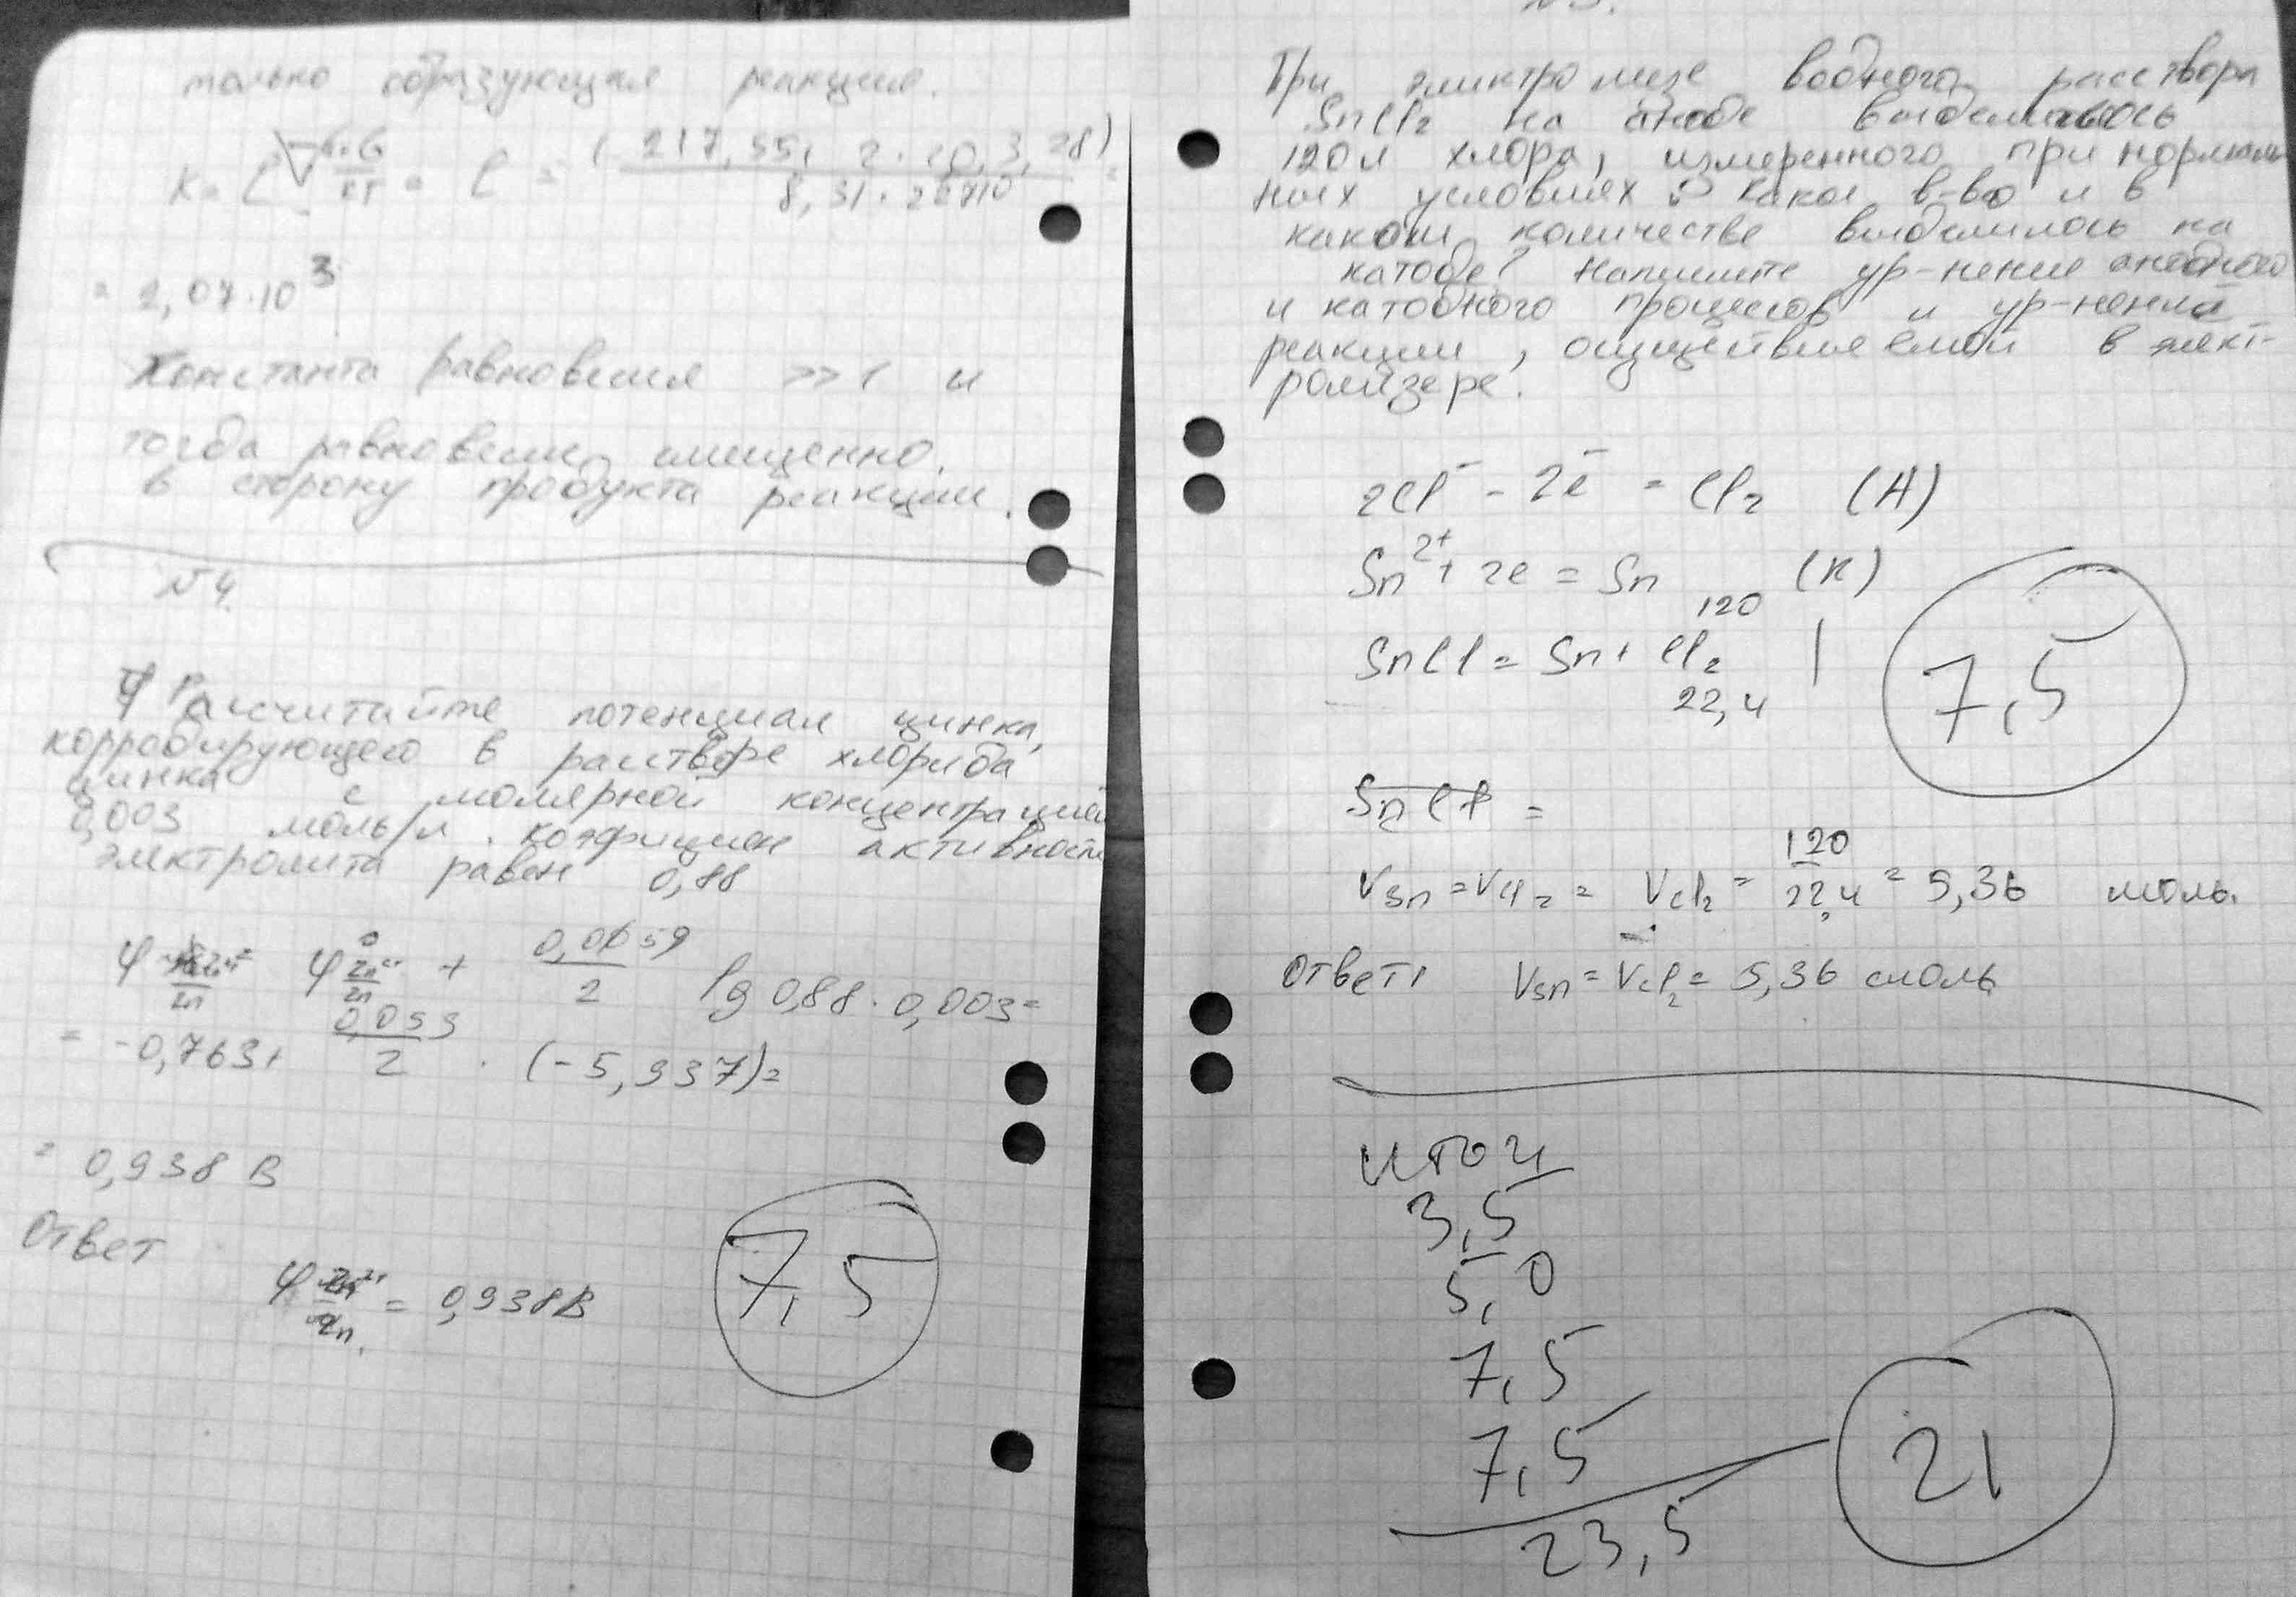 только образующая реакция.
K = e = (- 217,55, 2 · 10,3,28)
8,31 ·
= 2,07·10³
Константа равновесия >> 1 и
тогда равновесие смещенно.
в сторону продукта реакции.
N4.
Рассчитайте потенциал цинка,
корродирующего в растворе хлорида
цинка с молярной концентрацией
0,003 моль/л. коэфициен активности
электролита равен 0,88
φ Zn φ⁰ Zn²⁺/Zn + 0,059/2 lg 0,88 · 0,003 =
= -0,763 + 0,059/2 · (-5,937) =
= 0,938 В
Ответ
φ Zn²⁺/Zn = 0,938В
7,5
При электролизе водного расствора
SnCl₂ на аноде выделилось
120л хлора, измеренного при нормаль
ных условиях. Какое в-во и в
каком количестве выделилось на
катоде? Напишите ур-нение анодного
и катодного процесов и ур-нения
реакции, осуществляемой в элект-
ролизере.
2Cl⁻ - 2e⁻ = Cl₂ (А)
Sn²⁺ + 2e = Sn (К)
120
SnCl = Sn + Cl₂ |
22,4
7,5
SnCl =
Vsn = Vcl₂ = Vcl₂ = 120/22,4 = 5,36 моль.
Ответ: Vsn = Vcl₂ = 5,36 моль
итог
3,5
5,0
7,5
7,5
23,5
21